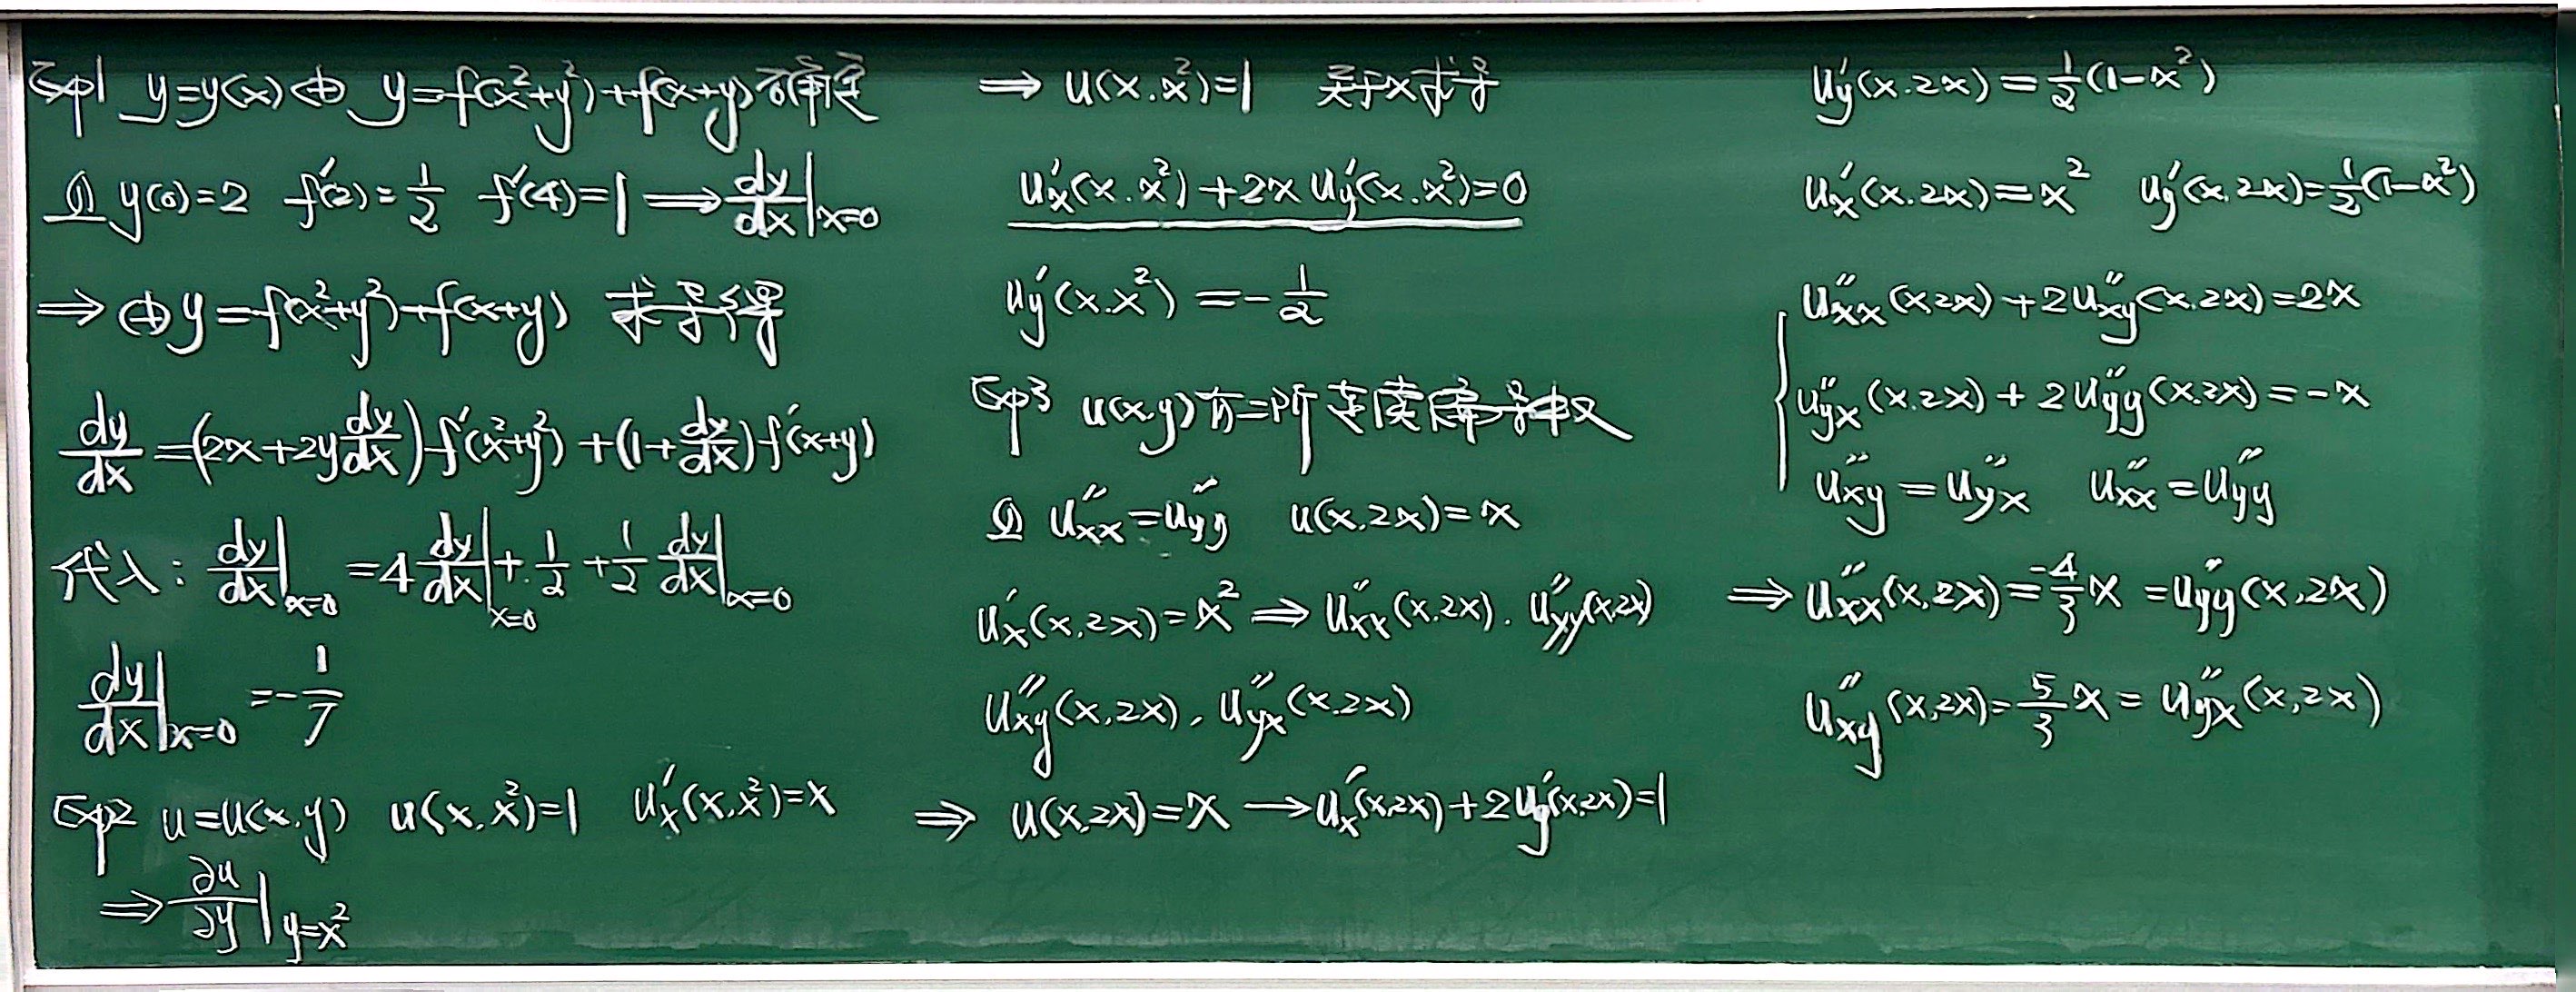 Exp1 y=y(x)由 y=f(x²+y²)+f(x+y)所确定
且 y(0)=2 f'(2)=1/2 f'(4)=1 ⟹ dy/dx|x=0
⟹ 由y=f(x²+y²)+f(x+y) 求导得
dy/dx=(2x+2y dy/dx)f'(x²+y²)+(1+dy/dx)f'(x+y)
代入: dy/dx|x=0 =4 dy/dx|x=0 + 1/2 + 1/2 dy/dx|x=0
dy/dx|x=0 =-1/7
Exp2 u=u(x.y) u(x.x²)=1 u'x(x,x²)=x
⟹ ∂u/∂y|y=x²
⟹ u(x.x²)=1 关于x求导
u'x(x.x²)+2x u'y(x.x²)=0
u'y(x.x²)=-1/2
Exp3 u(x.y)有二阶连续偏导
且 u''xx=u''yy u(x.2x)=x
u'x(x.2x)=x² ⟹ u''xx(x.2x). u''xy(x,2x)
u''xy(x,2x), u''yx(x.2x)
⟹ u(x,2x)=x ⟶ u'x(x,2x)+2u'y(x,2x)=1
u'y(x.2x)=1/2(1-x²)
u'x(x.2x)=x² u'y(x,2x)=1/2(1-x²)
u''xx(x2x)+2u''xy(x.2x)=2x
u''yx(x.2x)+2u''yy(x.2x)=-x
u''xy=u''yx u''xx=u''yy
⟹ u''xx(x,2x)=-4/3 x =u''yy(x,2x)
u''xy(x,2x)=5/3 x = u''yx(x,2x)